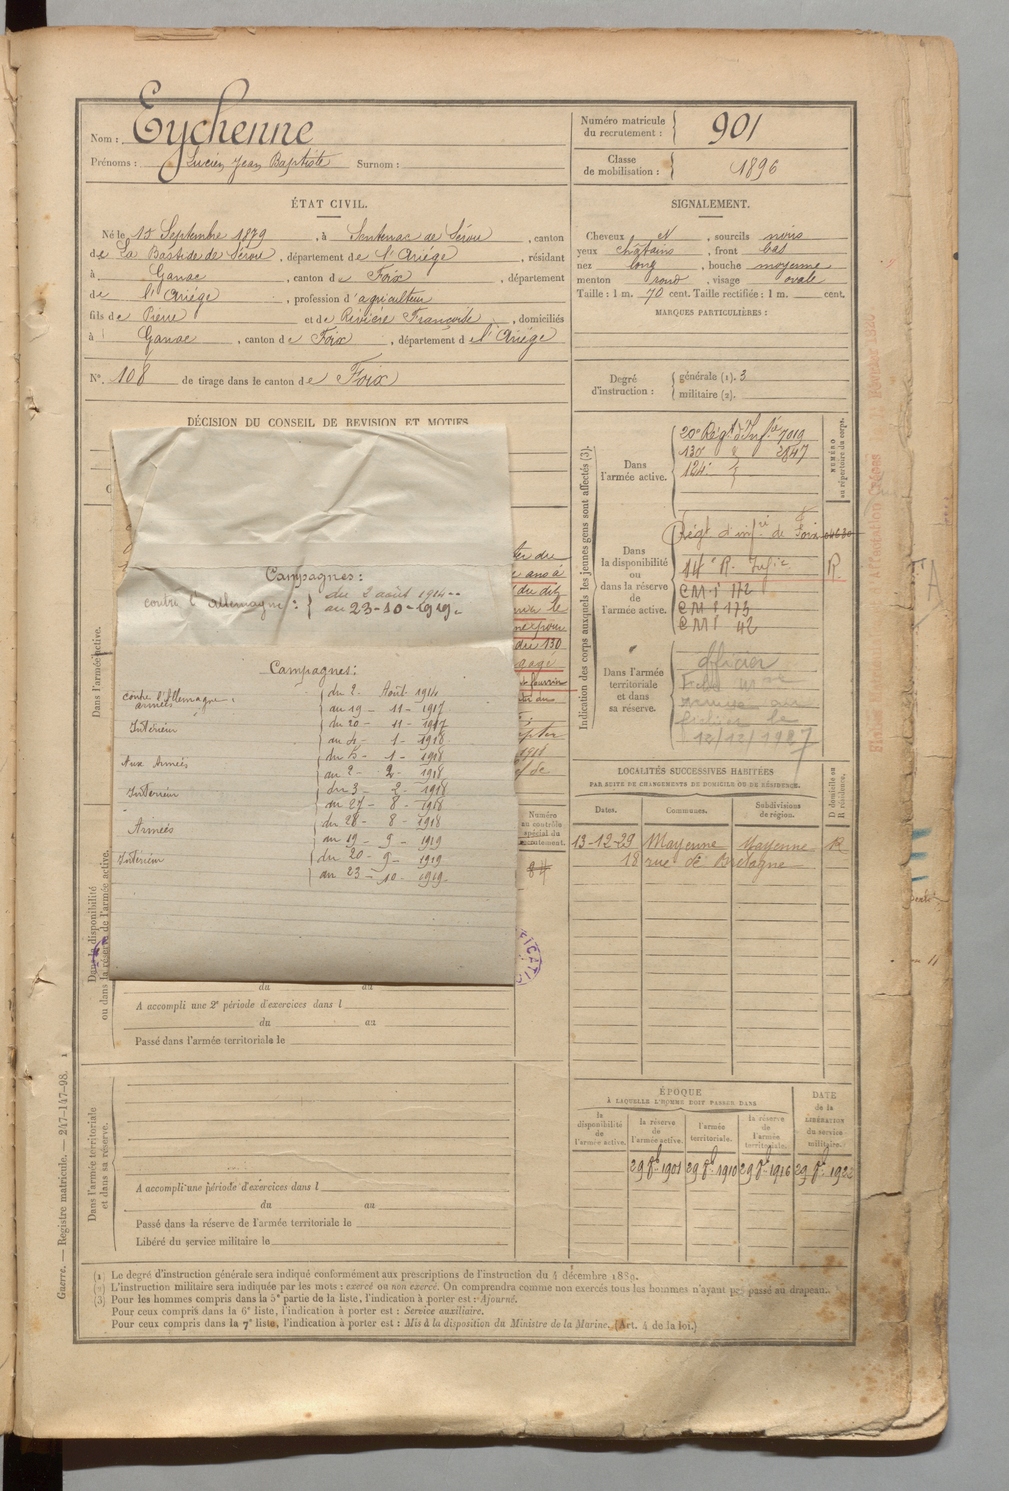 Nom : Eychenne
Prénoms : Lucien Jean Baptiste Surnom :
Numéro matricule
du recrutement : 901
Classe
de mobilisation : 1896
ÉTAT CIVIL.
Né le 15 Septembre 1879, à Sentenac de Sérou, canton
de La Bastide de Sérou, département de l'Ariège, résidant
à Ganac, canton de Foix, département
de l'Ariège, profession d'agriculteur
fils de Pierre et de Rivière Françoise, domiciliés
à Ganac, canton de Foix, département de l'Ariège
N° 108 de tirage dans le canton de Foix
SIGNALEMENT.
Cheveux N, sourcils noirs
yeux châtains, front bas
nez long, bouche moyenne
menton rond, visage ovale
Taille : 1 m. 70 cent. Taille rectifiée : 1 m. cent.
MARQUES PARTICULIÈRES :
Degré
d'instruction :
générale (1). 3
militaire (2).
DÉCISION DU CONSEIL DE REVISION ET MOTIFS
Campagnes :
contre l'Allemagne : du 2 août 1914
au 23-10-1919.
Campagnes :
contre l'Allemagne :
armées
du 2 Août 1914
au 19 - 11 - 1917
Intérieur
du 20 - 11 - 1917
au 4 - 1 - 1918
Aux Armées
du 5 - 1 - 1918
au 2 - 2 - 1918
Intérieur
du 3 - 2 - 1918
au 27 - 8 - 1918
Armées
du 28 - 8 - 1918
au 19 - 9 - 1919
Intérieur
du 20 - 9 - 1919
au 23 - 10 - 1919
Dans l'armée active.
Dans la disponibilité
ou dans la réserve de l'armée active.
Indication des corps auxquels les jeunes gens sont affectés (3).
Dans
l'armée active.
20e Régt d'Inf.ie 7019
130 2847
124e
NUMÉRO
au répertoire du corps.
Dans
la disponibilité
ou
dans la réserve
de
l'armée active.
Régt d'inf.ie de Foix
14e R. Infie R.
CMI 172
CMI 175
CMI 42
Dans l'armée
territoriale
et dans
sa réserve.
Officier
12/12/1927
Numéro
au contrôle
spécial du
recrutement.
84
LOCALITÉS SUCCESSIVES HABITÉES
PAR SUITE DE CHANGEMENTS DE DOMICILE OU DE RÉSIDENCE.
Dates. Communes. Subdivisions
de région.
D domicile ou
R résidence.
13-12-29 Mayenne Mayenne R
18 rue de Bretagne
du au
A accompli une 2e période d'exercices dans l
du au
Passé dans l'armée territoriale le
Dans l'armée territoriale
et dans sa réserve.
A accompli une période d'exercices dans l
du au
Passé dans la réserve de l'armée territoriale le
Libéré du service militaire le
ÉPOQUE
À LAQUELLE L'HOMME DOIT PASSER DANS
la
disponibilité
de
l'armée active.
la réserve
de
l'armée active.
l'armée
territoriale.
la réserve
de
l'armée
territoriale.
DATE
de la
LIBÉRATION
du service
militaire.
29 8bre 1901 29 8bre 1910 29 8bre 1916 29 8bre 1922
(1) Le degré d'instruction générale sera indiqué conformément aux prescriptions de l'instruction du 4 décembre 1889.
(2) L'instruction militaire sera indiquée par les mots : exercé ou non exercé. On comprendra comme non exercés tous les hommes n'ayant pas passé au drapeau.
(3) Pour les hommes compris dans la 5e partie de la liste, l'indication à porter est : Ajourné.
Pour ceux compris dans la 6e liste, l'indication à porter est : Service auxiliaire.
Pour ceux compris dans la 7e liste, l'indication à porter est : Mis à la disposition du Ministre de la Marine. (Art. 4 de la loi.)
Guerre. — Registre matricule. — 247-147-98.